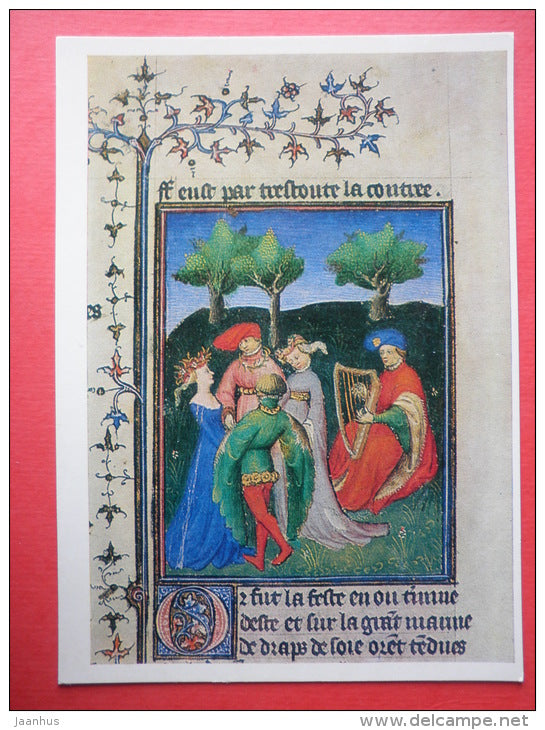 ff eust par trestoute la contree.
es
Or fut la feste en ou tinnue
deste et sur la grāt manne
de draps de soie orēt tēdues
jaanhus
www.delcampe.net